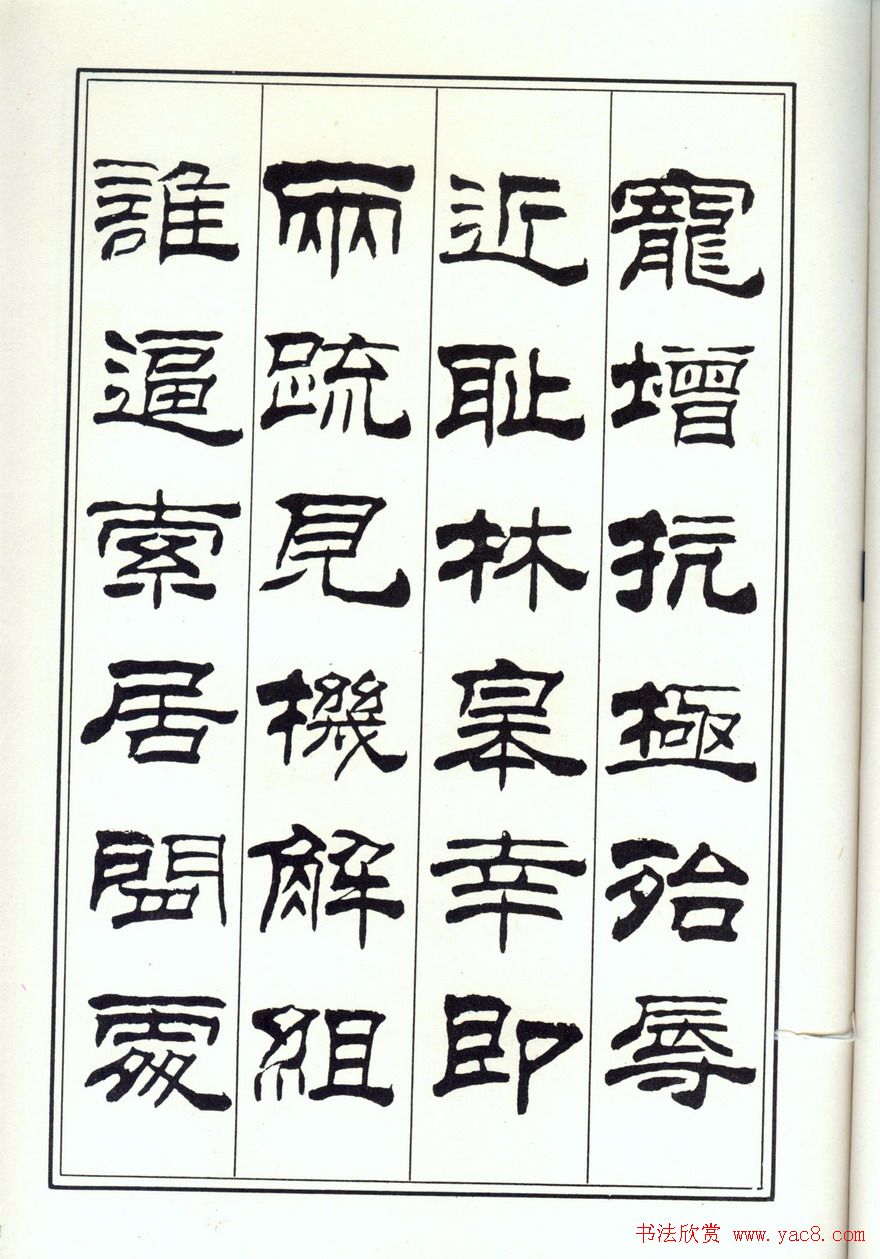 寵增抗極殆辱
近恥林皋幸即
兩疏見機解組
誰逼索居閒處
书法欣赏 www.yac8.com